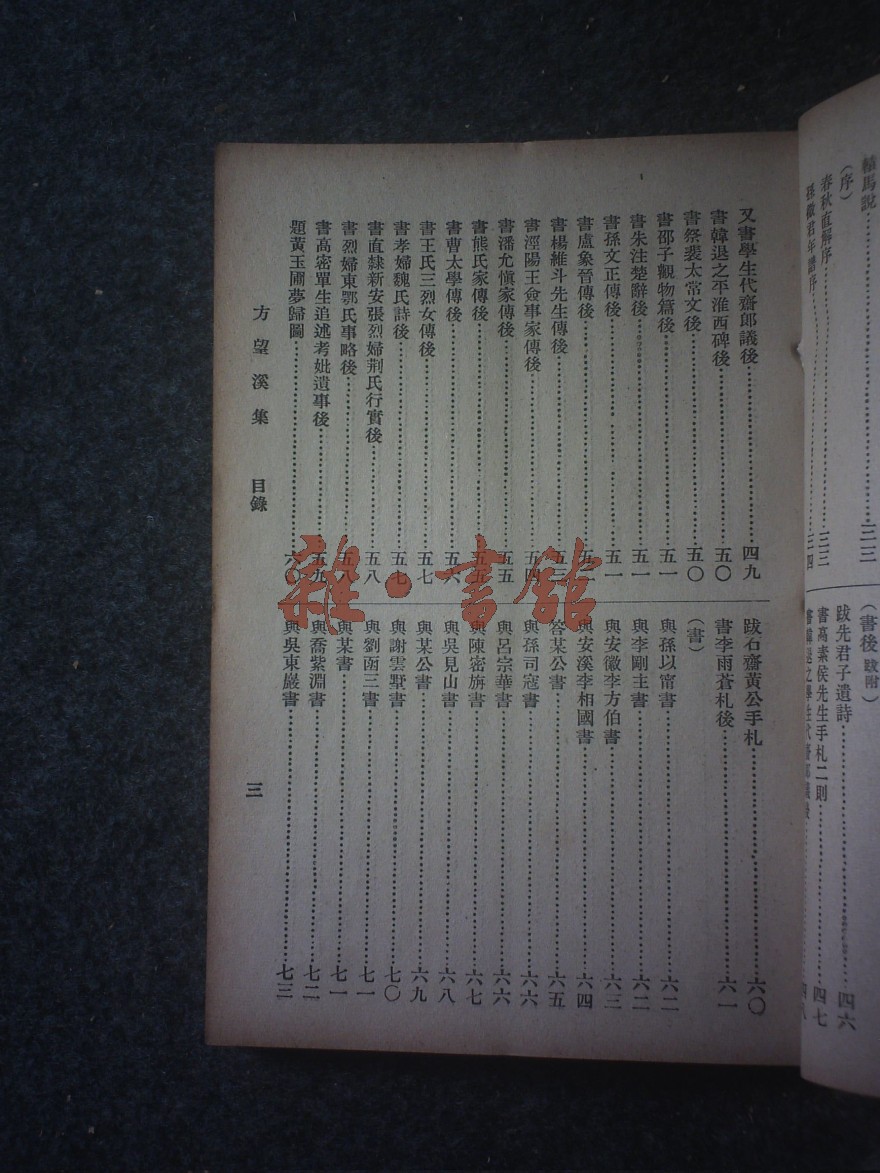 轅馬說……三三
(序)
春秋直解序……三三
孫徵君年譜序……三四
(書後 跋附)
跋先君子遺詩……四六
書高素侯先生手札二則……四七
書韓退之學生代齋郎議後……四八
又書學生代齋郎議後……四九
書韓退之平淮西碑後……五〇
書祭裴太常文後……五〇
書邵子觀物篇後……五一
書朱注楚辭後……五一
書孫文正傳後……五一
書盧象晉傳後……五二
書楊維斗先生傳後……五三
書涇陽王僉事家傳後……五四
書潘允慎家傳後……五五
書熊氏家傳後……五五
書曹太學傳後……五六
書王氏三烈女傳後……五七
書孝婦魏氏詩後……五七
書直隸新安張烈婦荆氏行實後……五八
書烈婦東鄂氏事略後……五八
書高密單生追述考妣遺事後……五九
題黃玉圃夢歸圖……六〇
跋石齋黃公手札……六〇
書李雨蒼札後……六一
(書)
與孫以甯書……六二
與李剛主書……六二
與安徽李方伯書……六三
與安溪李相國書……六四
答某公書……六五
與孫司寇書……六六
與呂宗華書……六六
與陳密旃書……六七
與吳見山書……六八
與某公書……六九
與謝雲墅書……七〇
與劉函三書……七一
與某書……七一
與喬紫淵書……七二
與吳東巖書……七三
方望溪集 目錄
三
雜·書館